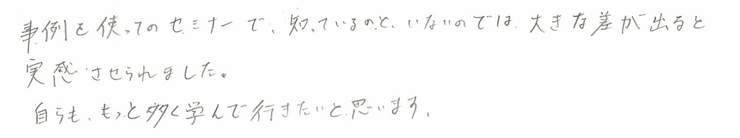 事例を使ってのセミナーで、知っているのと、いないのでは、大きな差が出ると
実感させられました。
自らも、もっと多く学んで行きたいと思います。